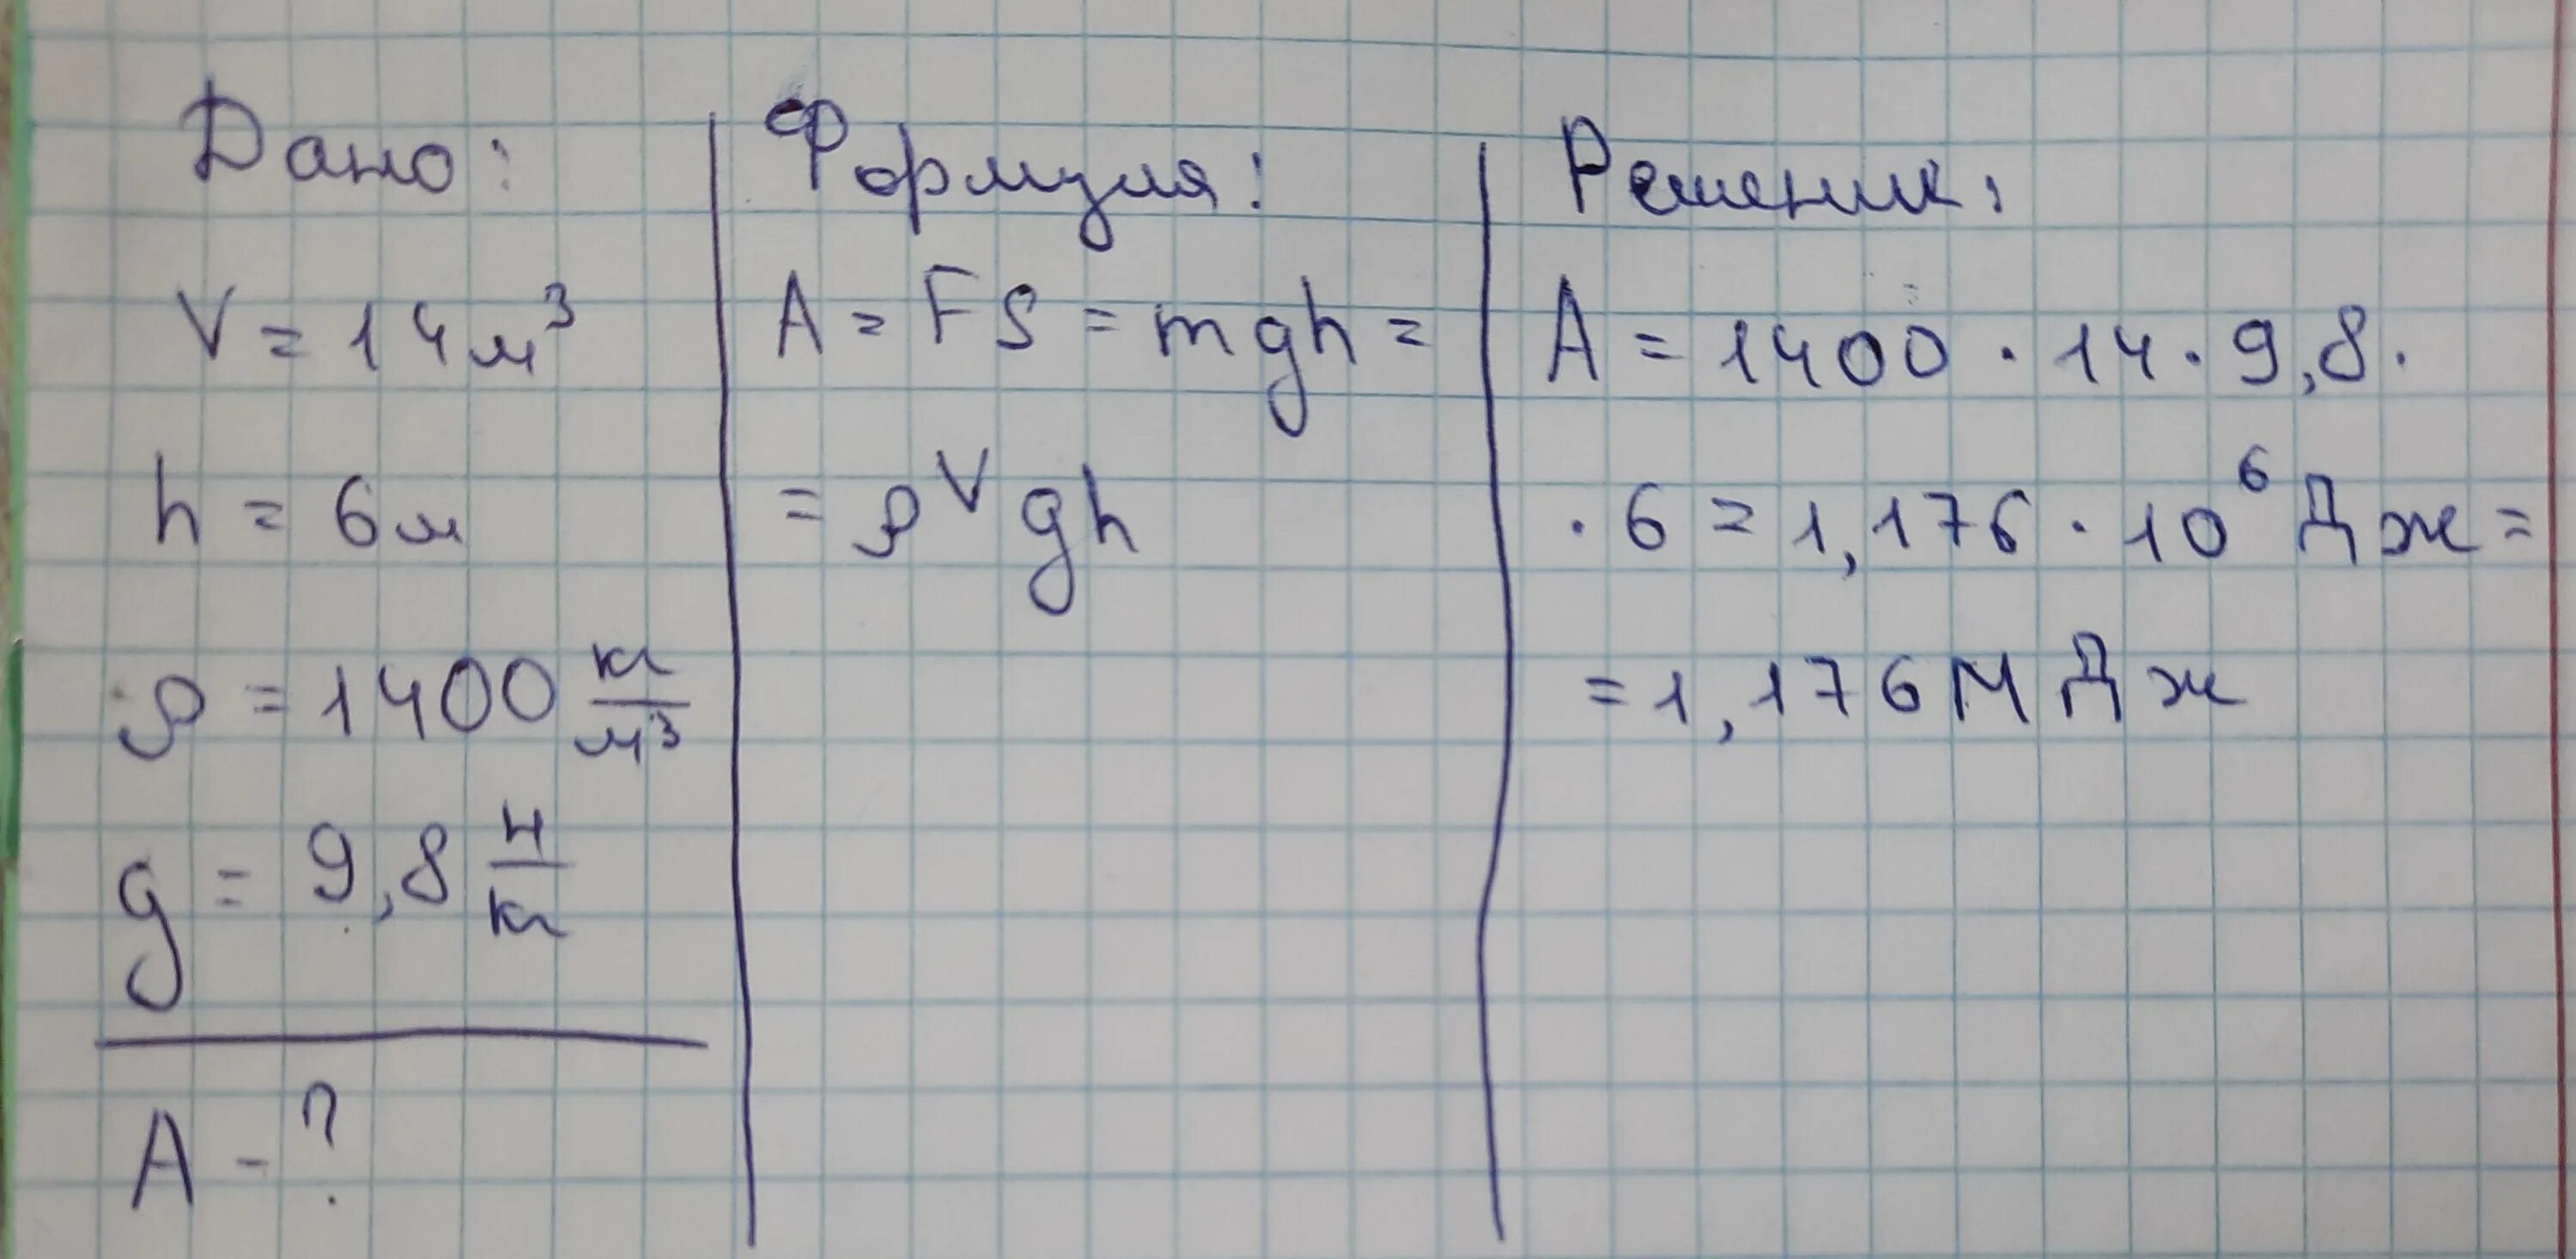 Дано:
V = 14 м³
h = 6 м
ρ = 1400 кг/м³
g = 9,8 Н/кг
A - ?
Формула:
A = FS = mgh =
= ρVgh
Решение:
A = 1400 · 14 · 9,8 ·
· 6 = 1,176 · 10⁶ Дж =
= 1,176 М Дж